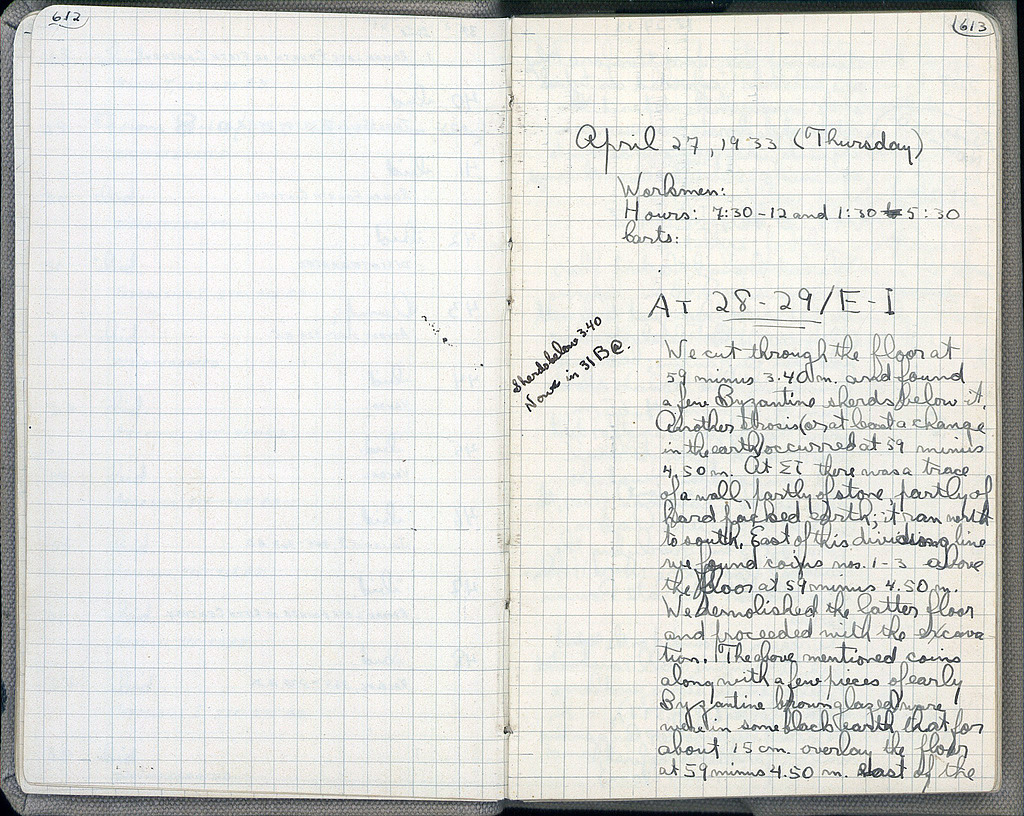 612
613
April 27, 1933 (Thursday)
Workmen:
Hours: 7:30-12 and 1:30 to 5:30
Carts:
AT 28-29/E-I
Sherds below 3.40
Now in 31 B@.
We cut through the floor at
59 minus 3.40 m. and found
a few Byzantine sherds below it.
Another strosis (or at least a change
in the earth) occurred at 59 minus
4.50 m. At ΣΤ there was a trace
of a wall, partly of stone, partly of
hard packed earth; it ran north
to south. East of this dividing line
we found coins nos. 1-3 above
the floor at 59 minus 4.50 m.
We demolished the latter floor
and proceeded with the excava-
tion. The above mentioned coins
along with a few pieces of early
Byzantine brown glazed ware
were in some black earth that for
about 15 cm. overlay the floor
at 59 minus 4.50 m. East of the